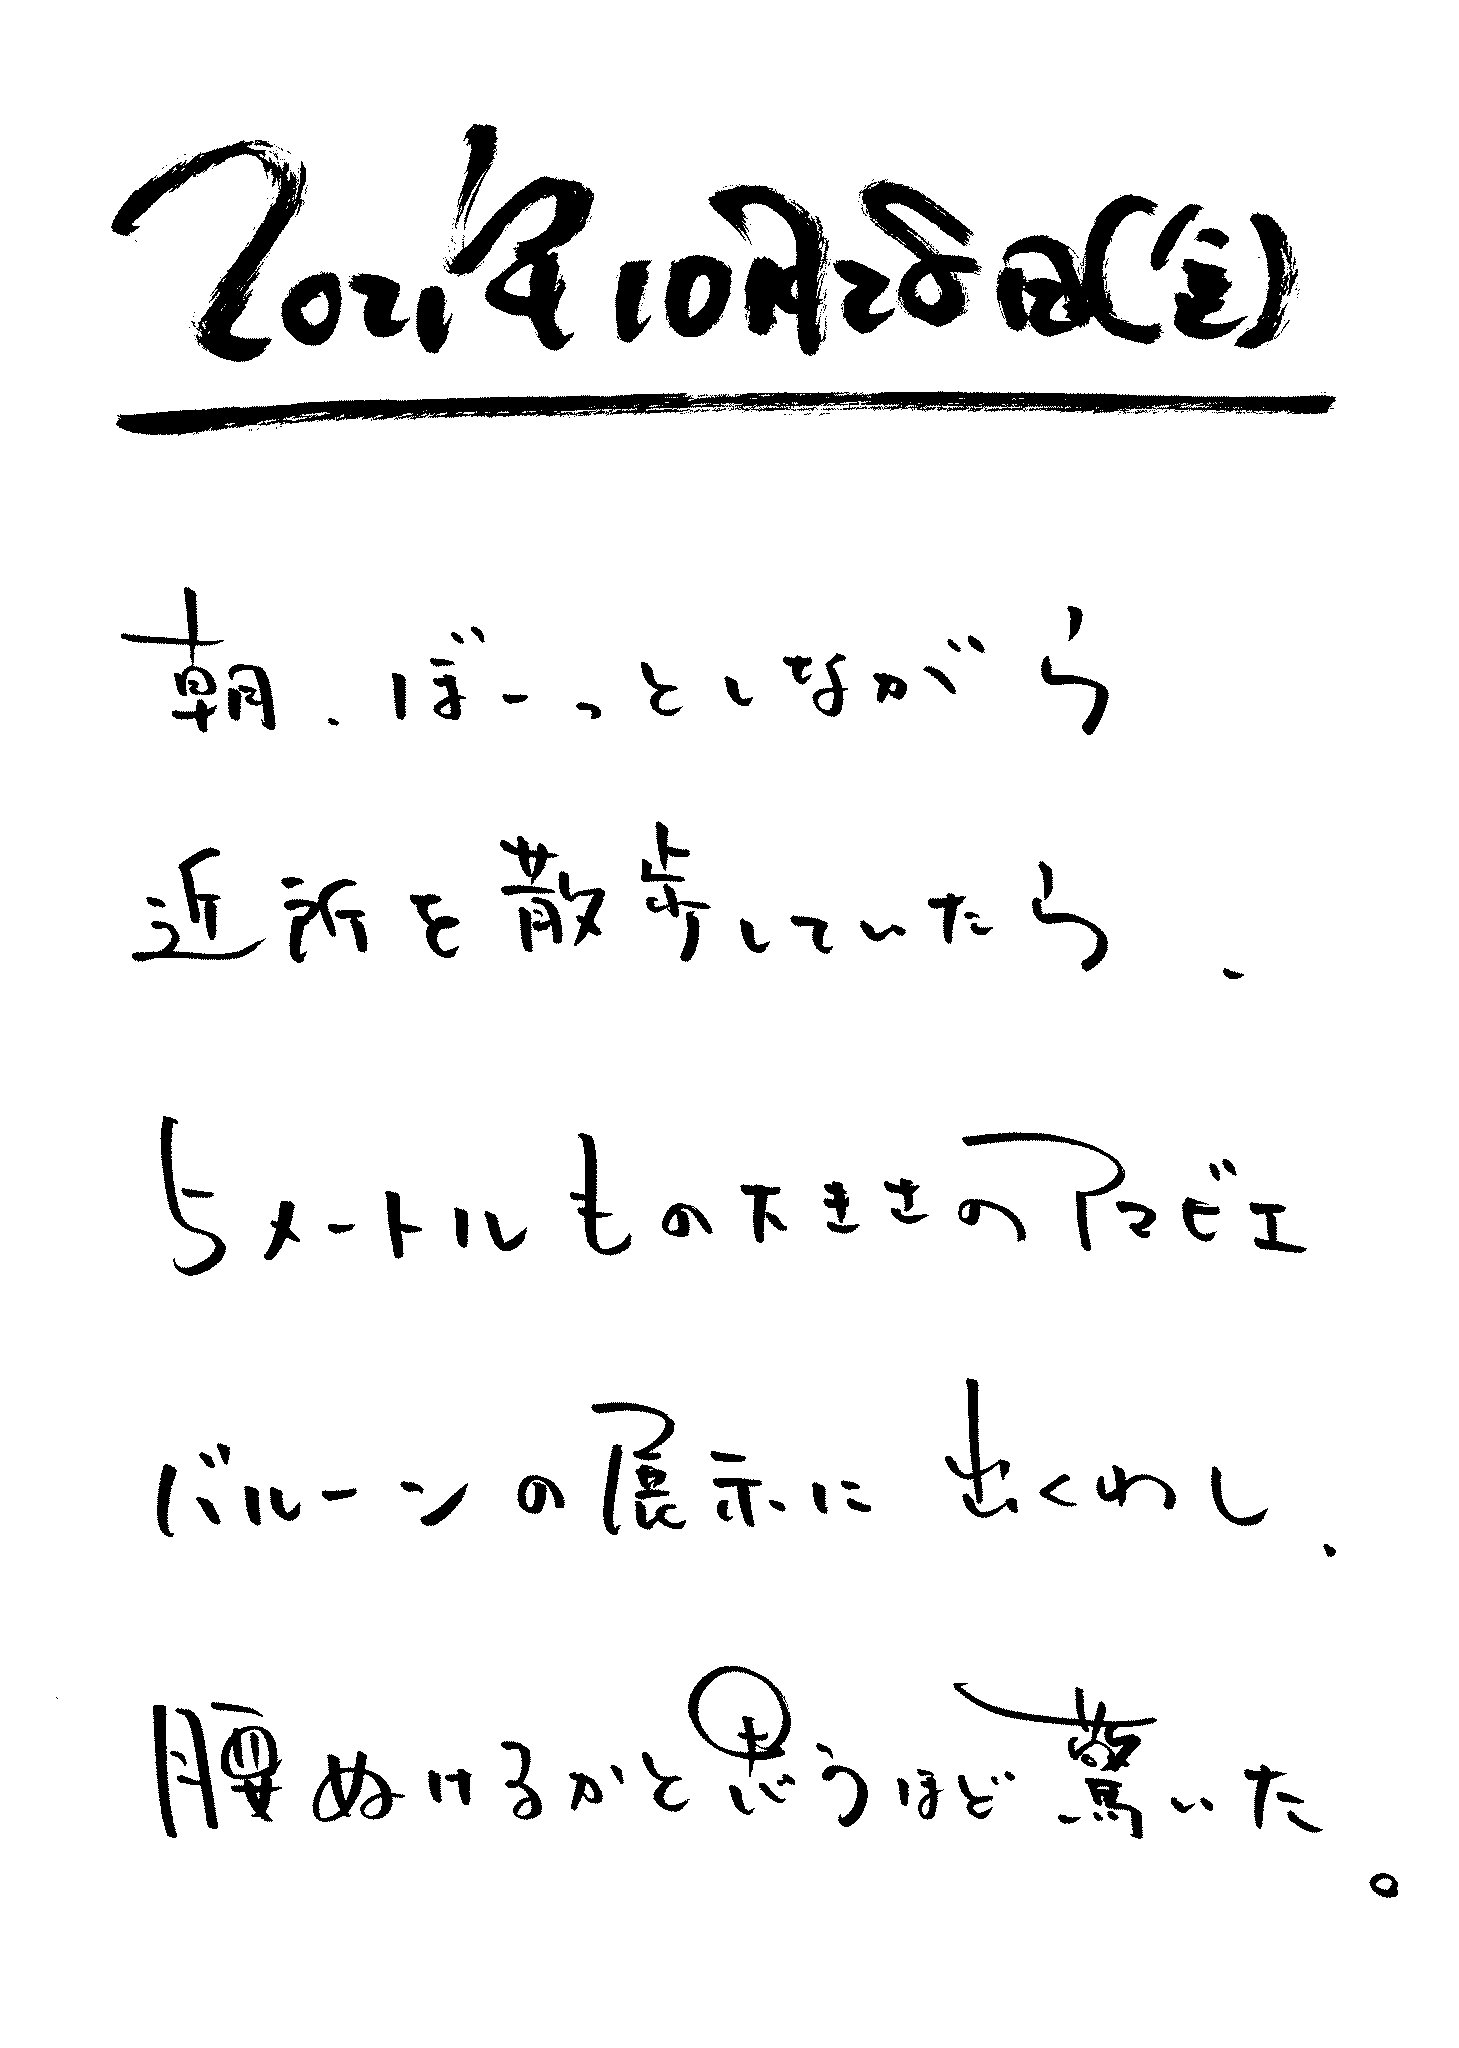 2021年10月28日( )
朝、ぼーっとしながら
近所を散歩していたら、
5メートルもの大きさのアマビエ
バルーンの展示に出くわし、
腰ぬけるかと思うほど驚いた。